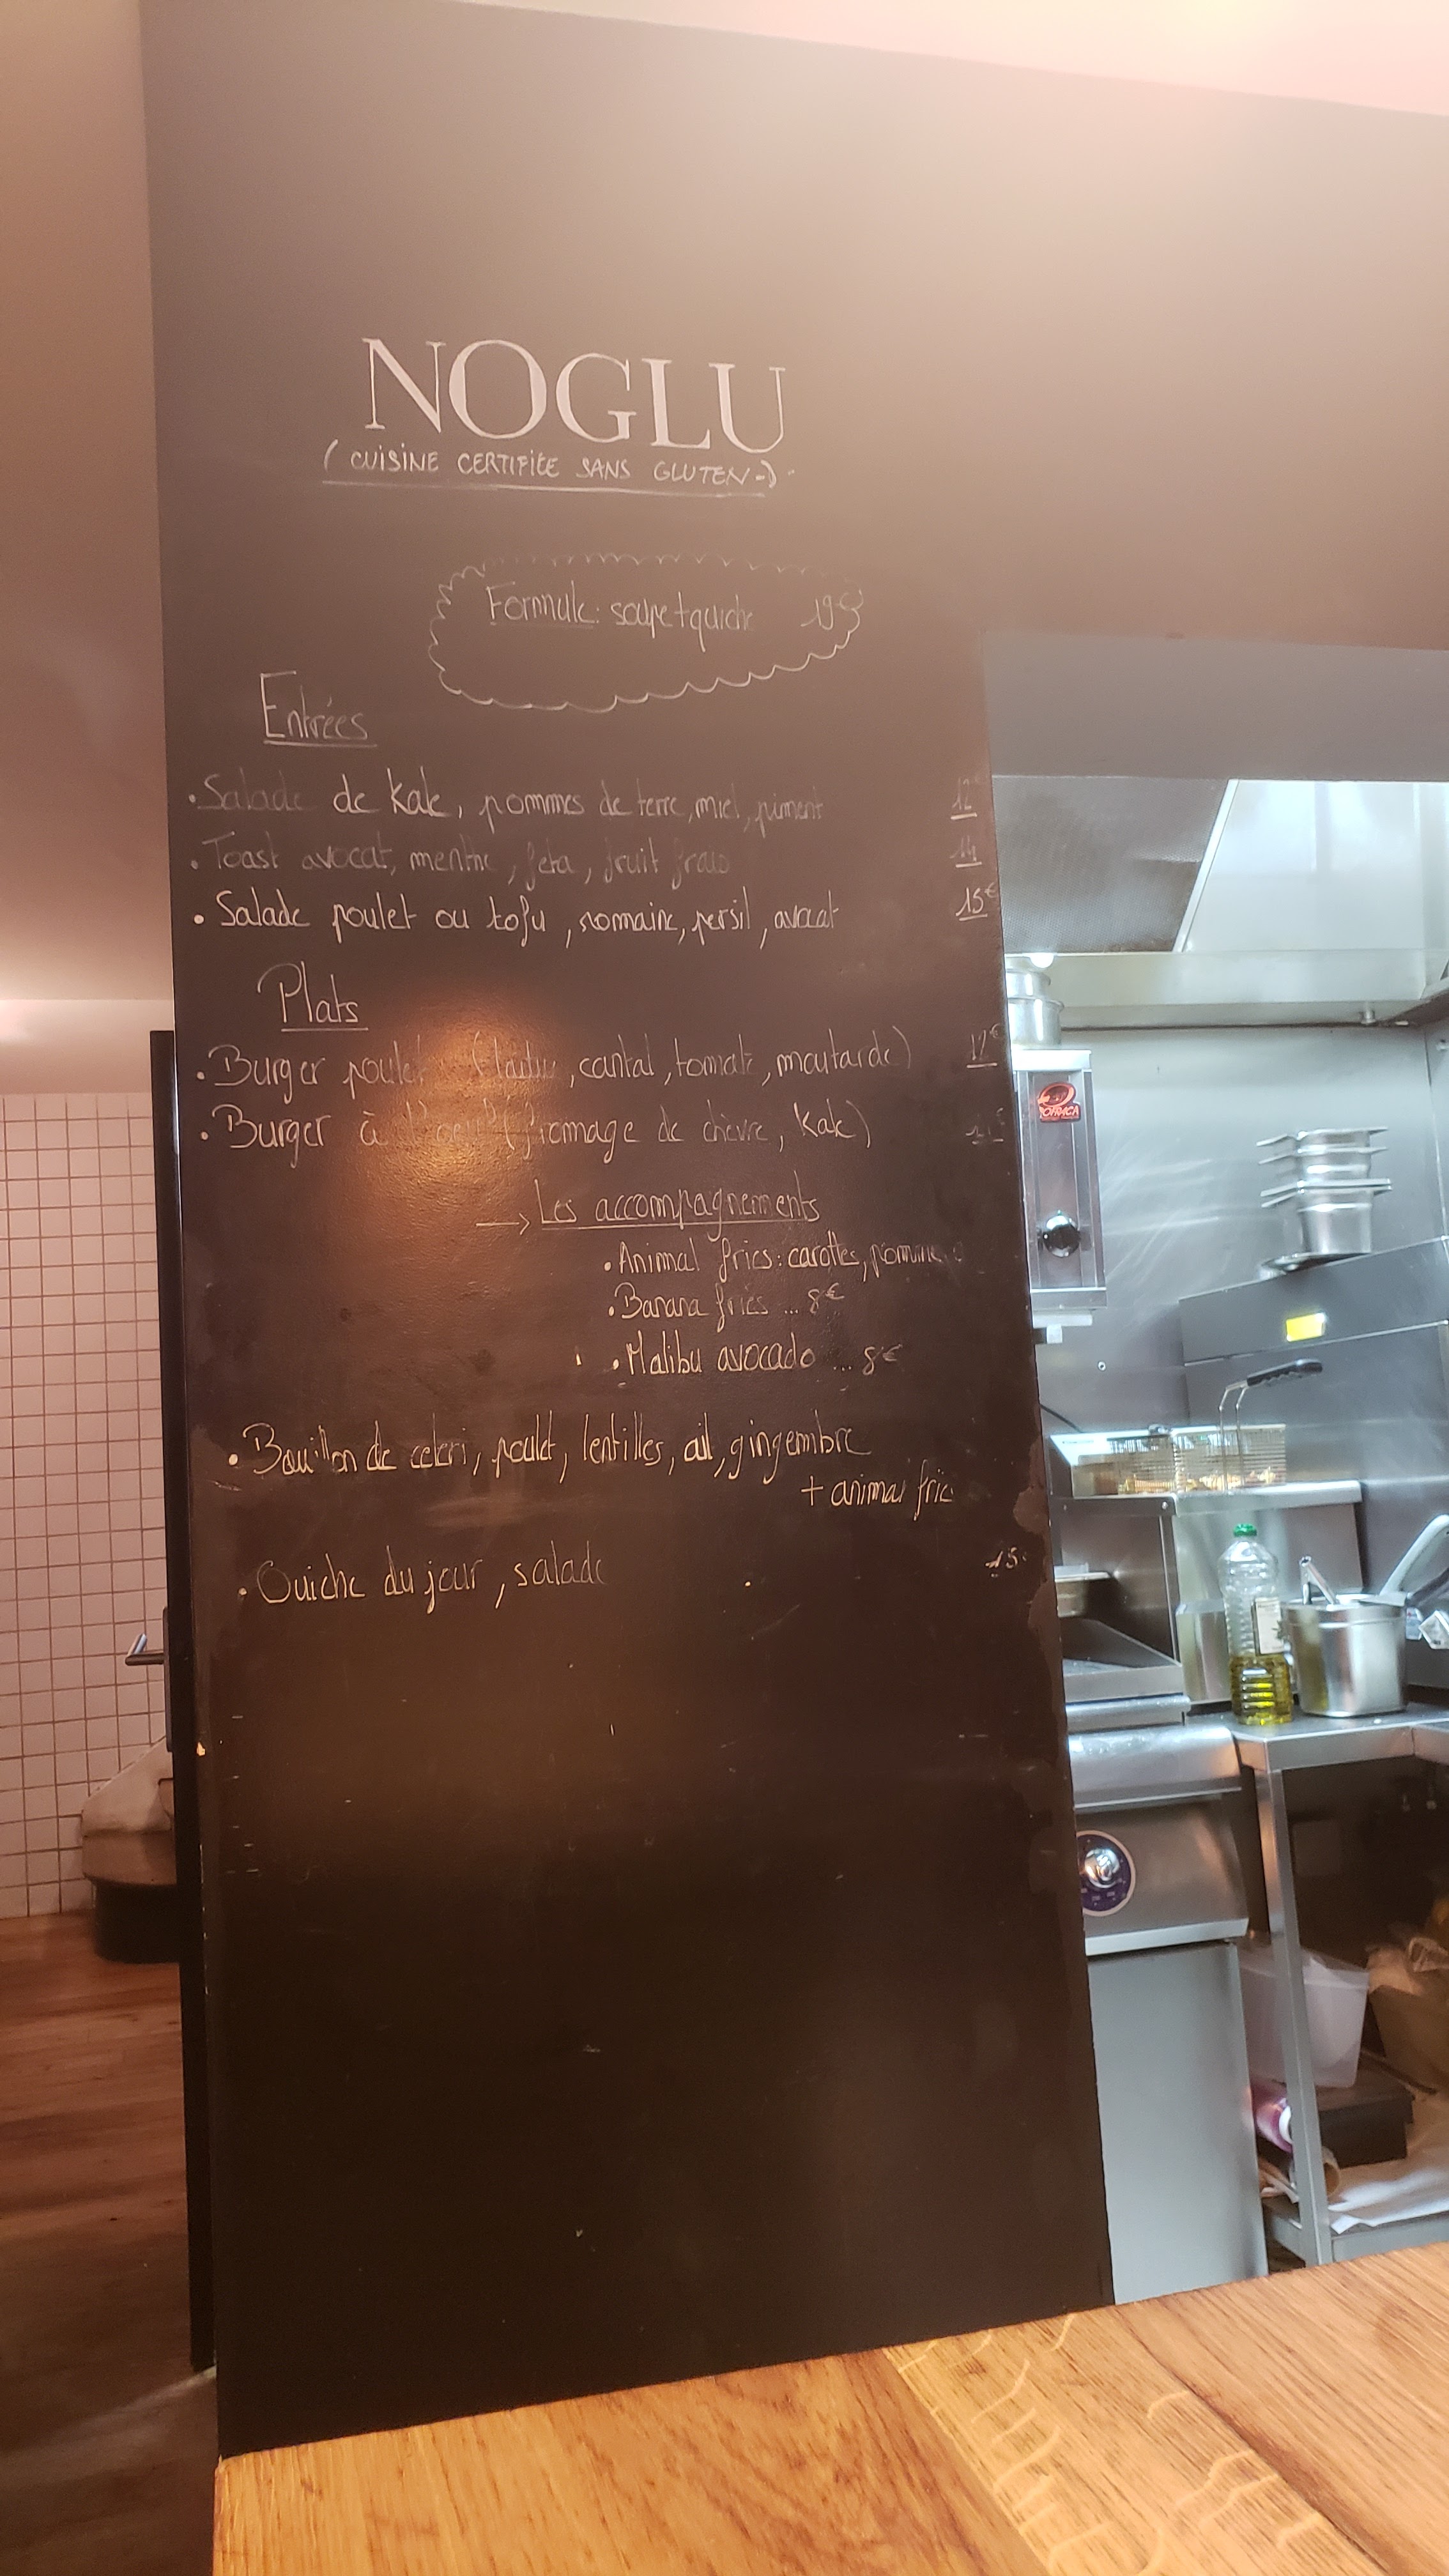 NOGLU
( CUISINE CERTIFIÉE SANS GLUTEN )
Formule : soupe + quiche 19€
Entrées
• Salade de Kale, pommes de terre, miel, piment 12
• Toast avocat, menthe, feta, fruit frais 14
• Salade poulet ou tofu, romaine, persil, avocat 15€
Plats
• Burger poulet ( , cantal, tomate, moutarde)
• Burger à (fromage de chèvre, Kale)
→ Les accompagnements
• Animal fries : carottes, pomme
• Banana fries ... 8€
• Malibu avocado ... 8€
• Bouillon de celeri, poulet, lentilles, ail, gingembre
+ animal frie
• Quiche du jour, salade 15€
OFRACA